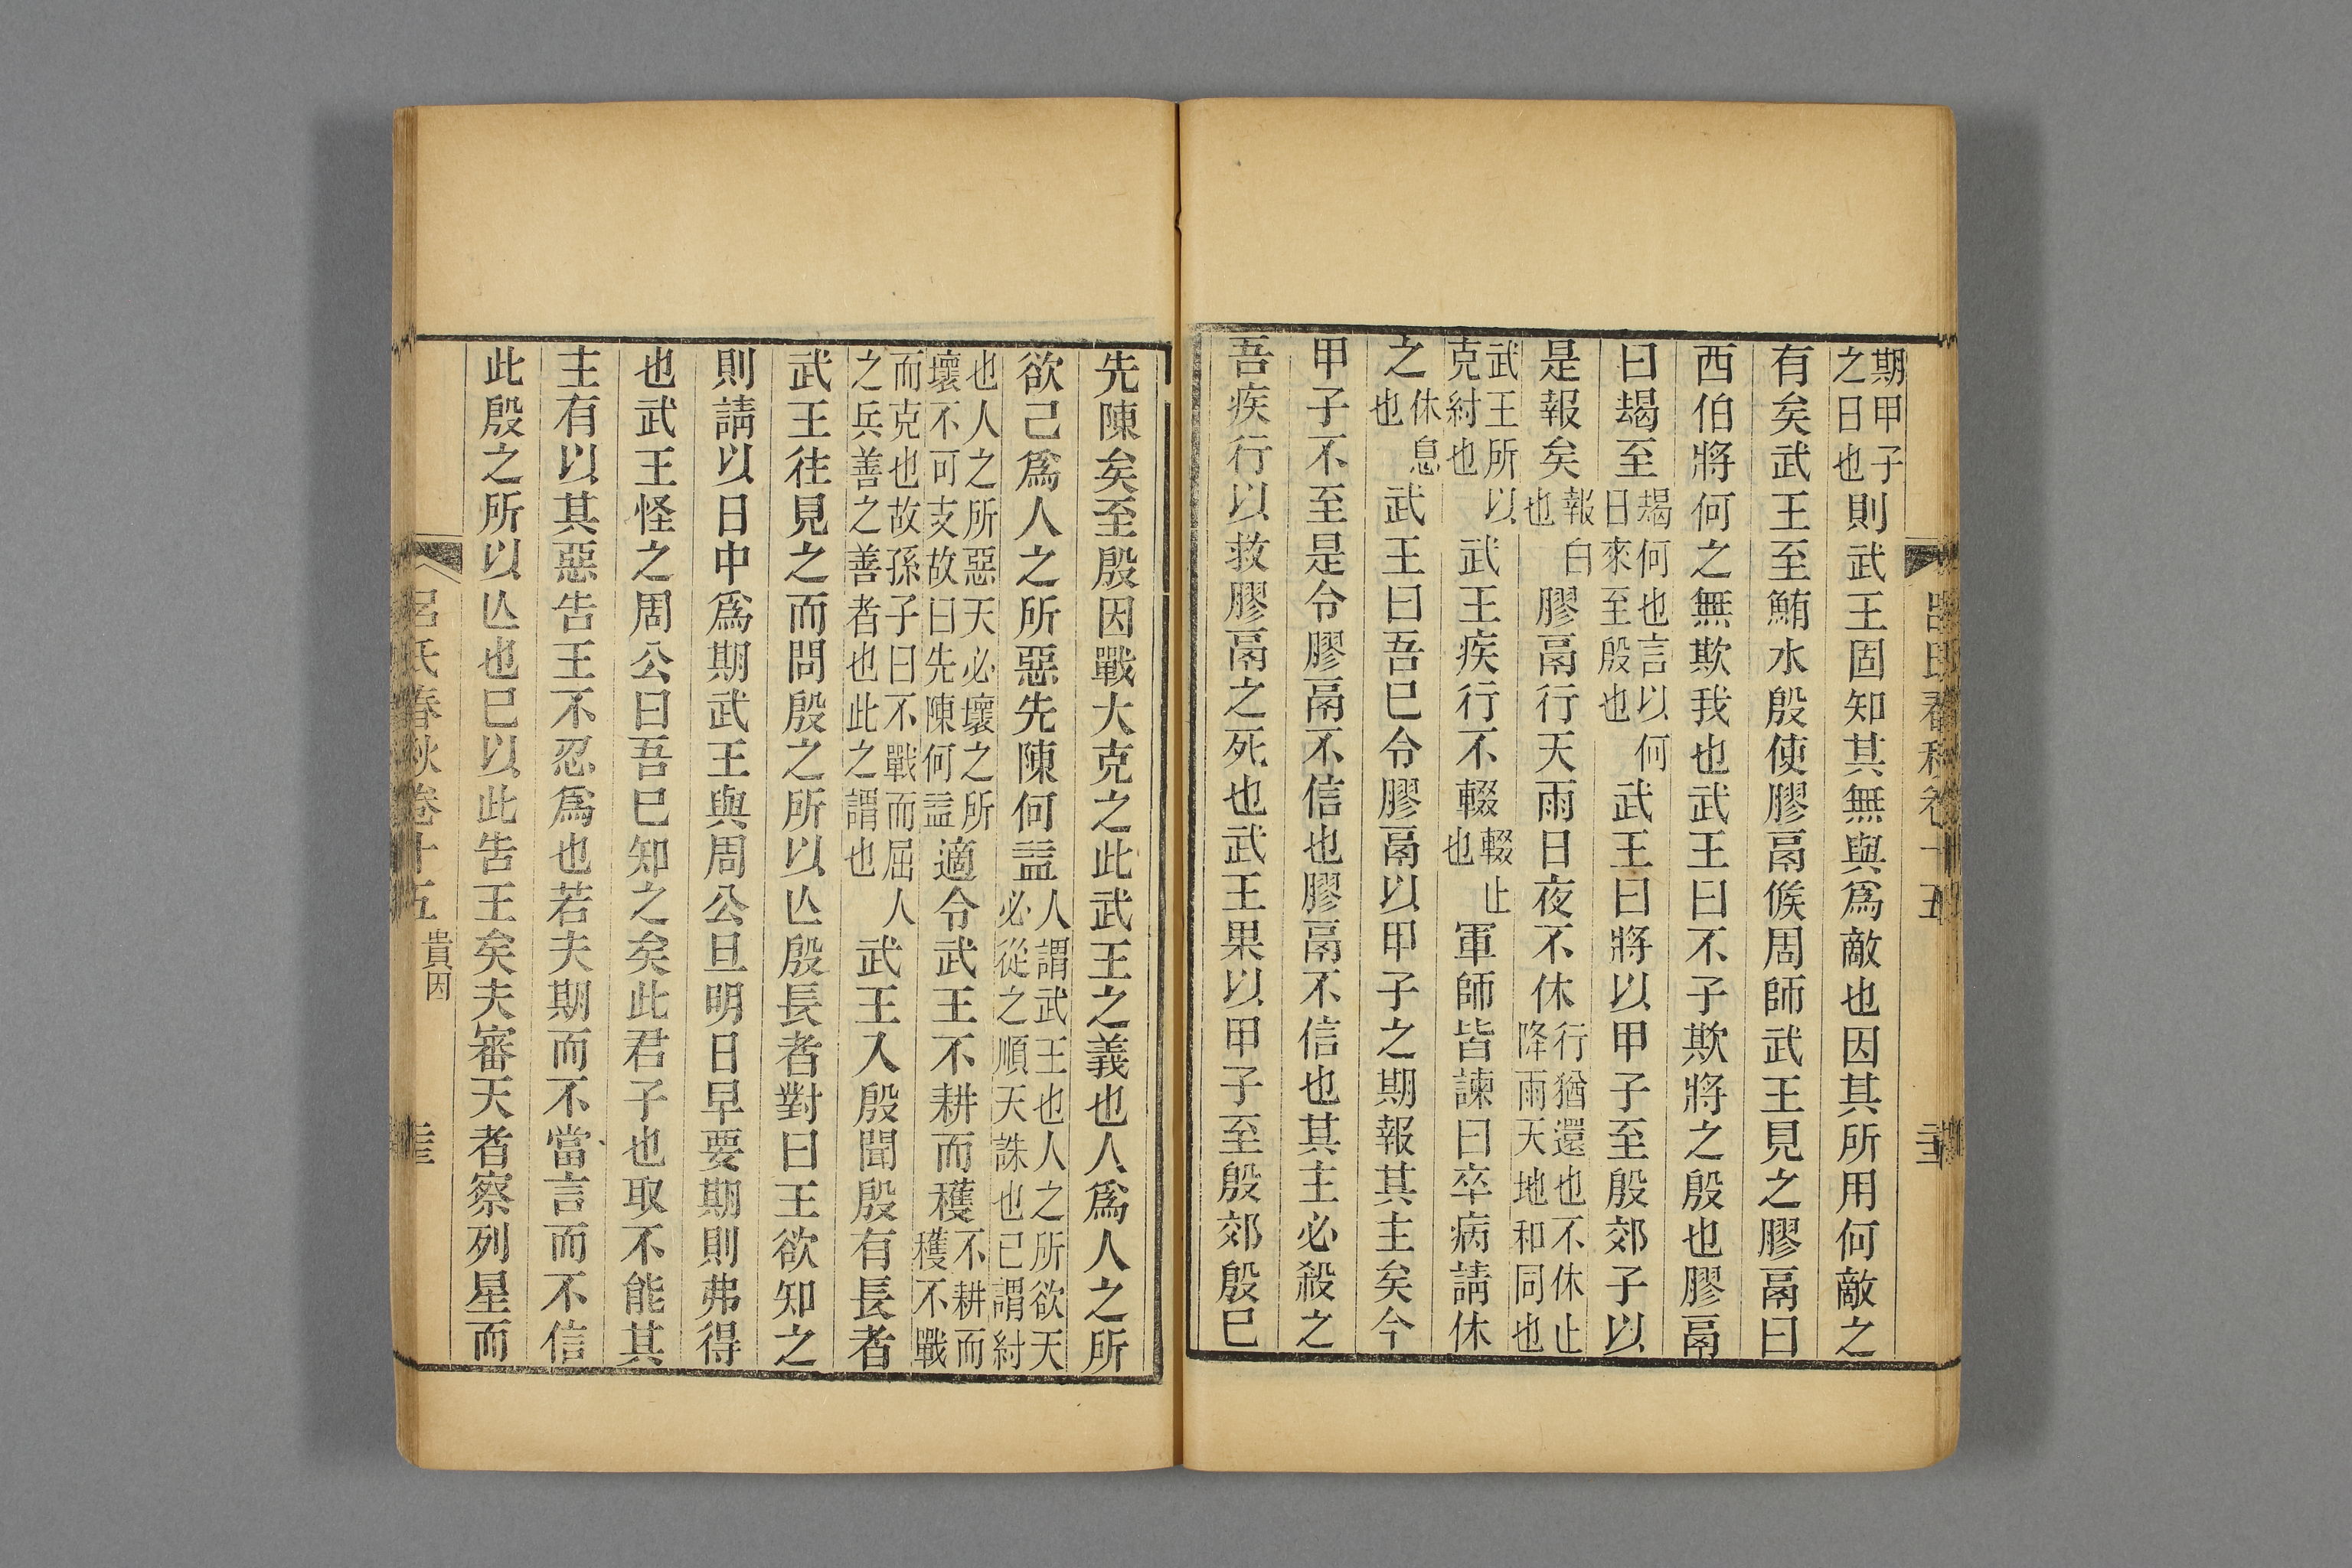 期甲子之日也則武王固知其無與爲敵也因其所用何敵之
有矣武王至鮪水殷使膠鬲候周師武王見之膠鬲曰
西伯將何之無欺我也武王曰不子欺將之殷也膠鬲
曰朅至朅何也言以何日來至殷也武王曰將以甲子至殷郊子以
是報矣報白也膠鬲行天雨日夜不休行猶還也不休止降雨天地和同也
武王所以克紂也武王疾行不輟輟止也軍師皆諫曰卒病請休
之休息也武王曰吾已令膠鬲以甲子之期報其主矣今
甲子不至是令膠鬲不信也膠鬲不信也其主必殺之
吾疾行以救膠鬲之死也武王果以甲子至殷郊殷已
先陳矣至殷因戰大克之此武王之義也人爲人之所
欲己爲人之所惡先陳何益人謂武王也人之所欲天必從之順天誅也已謂紂
也人之所惡天必壞之所壞不可支故曰先陳何益適令武王不耕而穫不耕而穫不戰
而克也故孫子曰不戰而屈人之兵善之善者也此之謂也武王入殷聞殷有長者
武王往見之而問殷之所以亾殷長者對曰王欲知之
則請以日中爲期武王與周公旦明日早要期則弗得
也武王怪之周公曰吾已知之矣此君子也取不能其
主有以其惡告王不忍爲也若夫期而不當言而不信
此殷之所以亾也已以此告王矣夫審天者察列星而
呂氏春秋卷十五 貴因